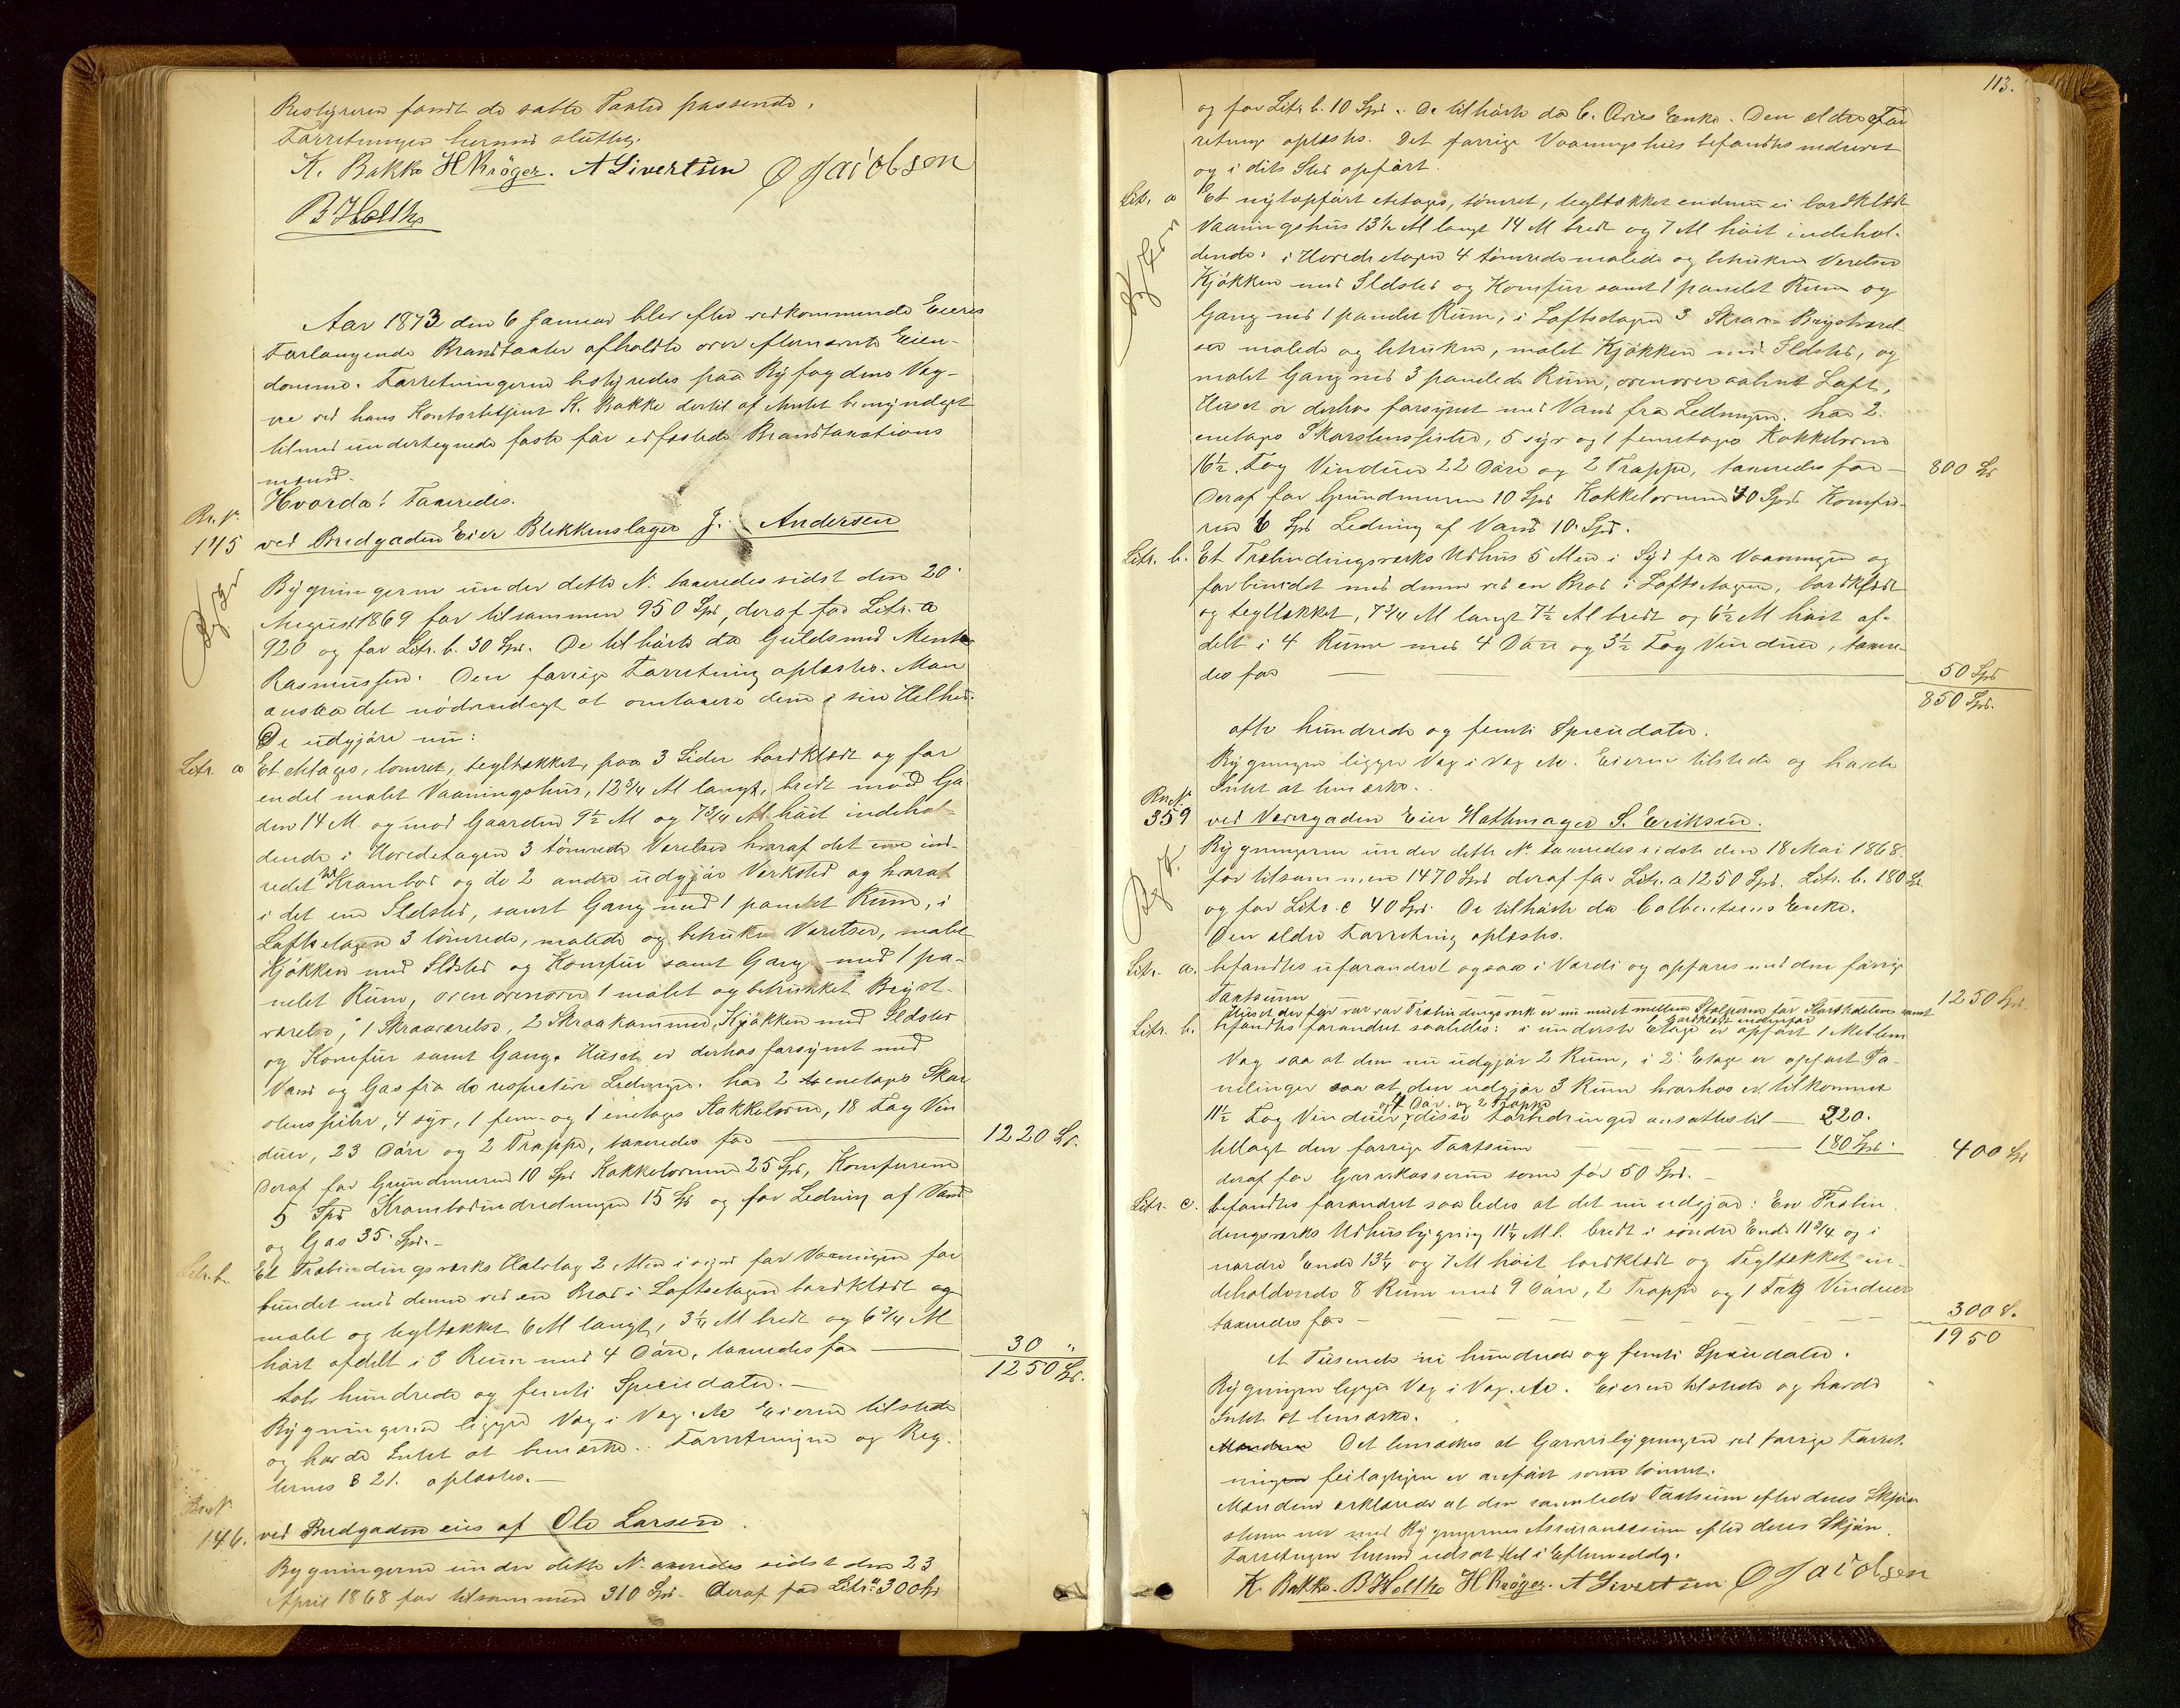 Bestyreren fandt de satte Taxter passende.
Forretningen hermed sluttet.
K. Bakke H Krøger. A Sivertsen O Jacobsen
B Holthe
Aar 1873 den 6 Januar blev efter vedkommende Eieres
Forlangende Brandtaxter afholdte over efternævnte Eien-
domme. Forretningerne bestyredes paa Byfogdens Veg-
ne ved hans Kontorbetjent K. Bakke dertil af Amtet bemyndiget
tilmed undertegnede faste før edfæstede Brandtaxations
mænd.
Hvorda! Taxeredes.
Br. N.
145 ved Bredgaden Eier Blikkenslager J. Andersen
Bygningerne under dette N. taxeredes sidst den 20
August 1869 for tilsammen 950 Spd, deraf for Litr. a
920 og for Litr. b. 30 Spd. De tilhørte da Guldsmed Mentz
Rasmussen. Den forrige Forretning oplæstes. Man
ansaa det nødvendigt at omtaxere dem i sin Helhed.
De udgjøre nu:
Litr. a Et etetages, tømret, tegltækket, paa 3 Sider bordklædt og for
endel malet Vaaningshus, 12 3/4 Al langt, bredt mod Ga
den 14 Al. og mod Gaarden 9 1/2 Al og 7 3/4 Al høit indehol-
dende i Hovedetagen 3 tømrede Værelser hvoraf det ene ind-
redet til Krambod og de 2 andre udgjør Værksted og hvoraf
i det ene Ildsted, samt Gang med 1 panelt Rum, i
Loftsetagen 3 tømrede, malede og betrukne Værelser, malet
Kjøkken med Ildsted og Komfur samt Gang med 1 pa-
nelet Rum, ovenover 1 malet og betrukket Bryst-
værelse, 1 Skraaværelse, 2 Skraakammer, Kjøkken med Ildsted
og Komfur samt Gang. Huset er derhos forsynet med
Vand og Gas fra de respective Ledninger. har 2 enetages Skor
stenspiber, 4 syv, 1 fem- og 1 enetages Kakkelovne, 18 Fag Vin
duer, 23 Døre og 2 Trapper, taxeredes for 1220 Sp.
Deraf for Grundmuren 10 Spd Kakkelovnene 25 Spd, Komfurene
5 Spd Krambodindredningen 15 Sp og for Ledning af Vand
og Gas 35 Spd.
Litr. b. Et Træbindingsværks Halvtag 2 Alen i syd for Vaaningen for
bundet med denne ved en Bro i Loftsetagen bordklædt og
malet og tegltækket 6 Al langt, 3 1/4 Al bredt og 6 3/4 Al
høit afdelt i 3 Rum med 4 Døre, taxeredes for 30 "
1250 Sp.
tolv hundrede og femti Speciedaler.
Bygningerne ligger Væg i Væg. Ae Eieren tilstede
og havde Intet at bemærke. Forretningen og Reg-
lernes § 21. oplæstes.
Br. N.
146. ved Bredgaden eies af Ole Larsen.
Bygningerne under dette N. taxeredes sidst den 23
April 1868 for tilsammen 310 Spd. Deraf for Litr. a 300 Sp
113.
og for Litr. b. 10 Spd. De tilhørte da C. Aries Enke. Den ældre For
retning oplæstes. Det forrige Vaaningshus befandtes nedrevet
og i dets Sted opført.
Litr. a Et nyt opført etetages, tømret, tegltækket endnu ei bordklædt
Vaaningshus 13 1/2 Al langt 14 Al bredt og 7 Al høit indehol-
dende: i Hovedetagen 4 tømrede malede og betrukne Værelser
Kjøkken med Ildsted og Komfur samt 1 panelt Rum og
Gang med 1 panelet Rum, i Loftsetagen 3 Skraa- Brystværel
ser malede og betrukne, malet Kjøkken med Ildsted, og
malet Gang med 3 panelede Rum, ovenover aabent Loft.
Huset er derhos forsynet med Vand fra Ledningen. har 2
enetages Skorstenspiber, 5 syv og 1 femetages Kakkelovne
16 1/2 Fag Vinduer 22 Døre og 2 Trapper, taxeredes for 800 Sp
Deraf for Grundmuren 10 Spd Kakkelovnene 40 Spd Komfu-
ren 6 Spd Ledning af Vand 10 Spd.
Litr. b. Et Træbindingsværks Udhus 5 Alen i Syd fra Vaaningen og
forbundet med denne ved en Bro i Loftsetagen, bordklædt
og tegltækket, 7 3/4 Al langt 7 1/2 Al bredt og 6 1/2 Al høit af-
delt i 4 Rum med 4 Døre og 3 1/2 Fag Vinduer, taxere-
des for 50 Spd
850 Spd.
otte hundrede og femti Speciedaler.
Bygningen ligger Væg i Væg Ae. Eieren tilstede og havde
Intet at bemærke.
Br. N.
359 ved Øvregaden Eier Hattemager S. Eriksen.
Bygningerne under dette N. taxeredes sidste den 18 Mai 1868
for tilsammen 1470 Spd deraf for Litr. a 1250 Spd. Litr. b. 180 Sp
og for Litr. c 40 Spd. De tilhørte da Colbentsens Enke.
Den ældre Forretning oplæstes.
Litr. a. befandtes uforandret ogsaa i Værdi og opføres med den forrige
Taxtsum 1250 Spd.
Huset der før var Træbindingsværk er nu muret mellem Stolperne for Størstedelen samt
bordklædt udenfor
Litr. b. befandtes forandret saaledes: i underste Etage er opført 1 Mellem
Væg saa at den nu udgjør 2 Rum, i 2 Etage er opført Pa-
nelinger saa at den udgjør 3 Rum hvorhos er tilkommet
og 4 Dør. og 2 Trapper
11 1/2 Fag Vinduer, disse Forbedringer ansættes til 220.
tillagt den forrige Taxtsum 180 Spd. 400 Sp
deraf for Garverkasserne som før 50 Spd.
Litr. c. befandtes forandret saaledes at det nu udgjør: En Træbin
dingsværks Udhusbygning 11 1/4 Al l. bredt i søndre Ende 11 3/4 og i
nordre Ende 13 1/4 og 7 Al høit bordklædt og Tegltækket in-
deholdende 8 Rum med 9 Døre, 2 Trapper og 1 Fag Vinduer
taxeredes for 300 S.
1950
et Tusende ni hundrede og femti Speciedaler.
Bygningen ligger Væg i Væg. Ae. Eieren tilstede og havde
Intet at bemærke.
Mændene Det bemærkes at Garveribygningen ved forrige Forret-
ningen feilagtigen er anført som tømret.
Mændene erklærede at den samlede Taxtsum efter deres Skjøn
stemmer med Bygningernes Assurancesum efter deres Skjøn.
Forretningen hermed udsat til i Eftermiddag.
K. Bakke. B Holthe H Krøger. A Sivertsen O Jacobsen